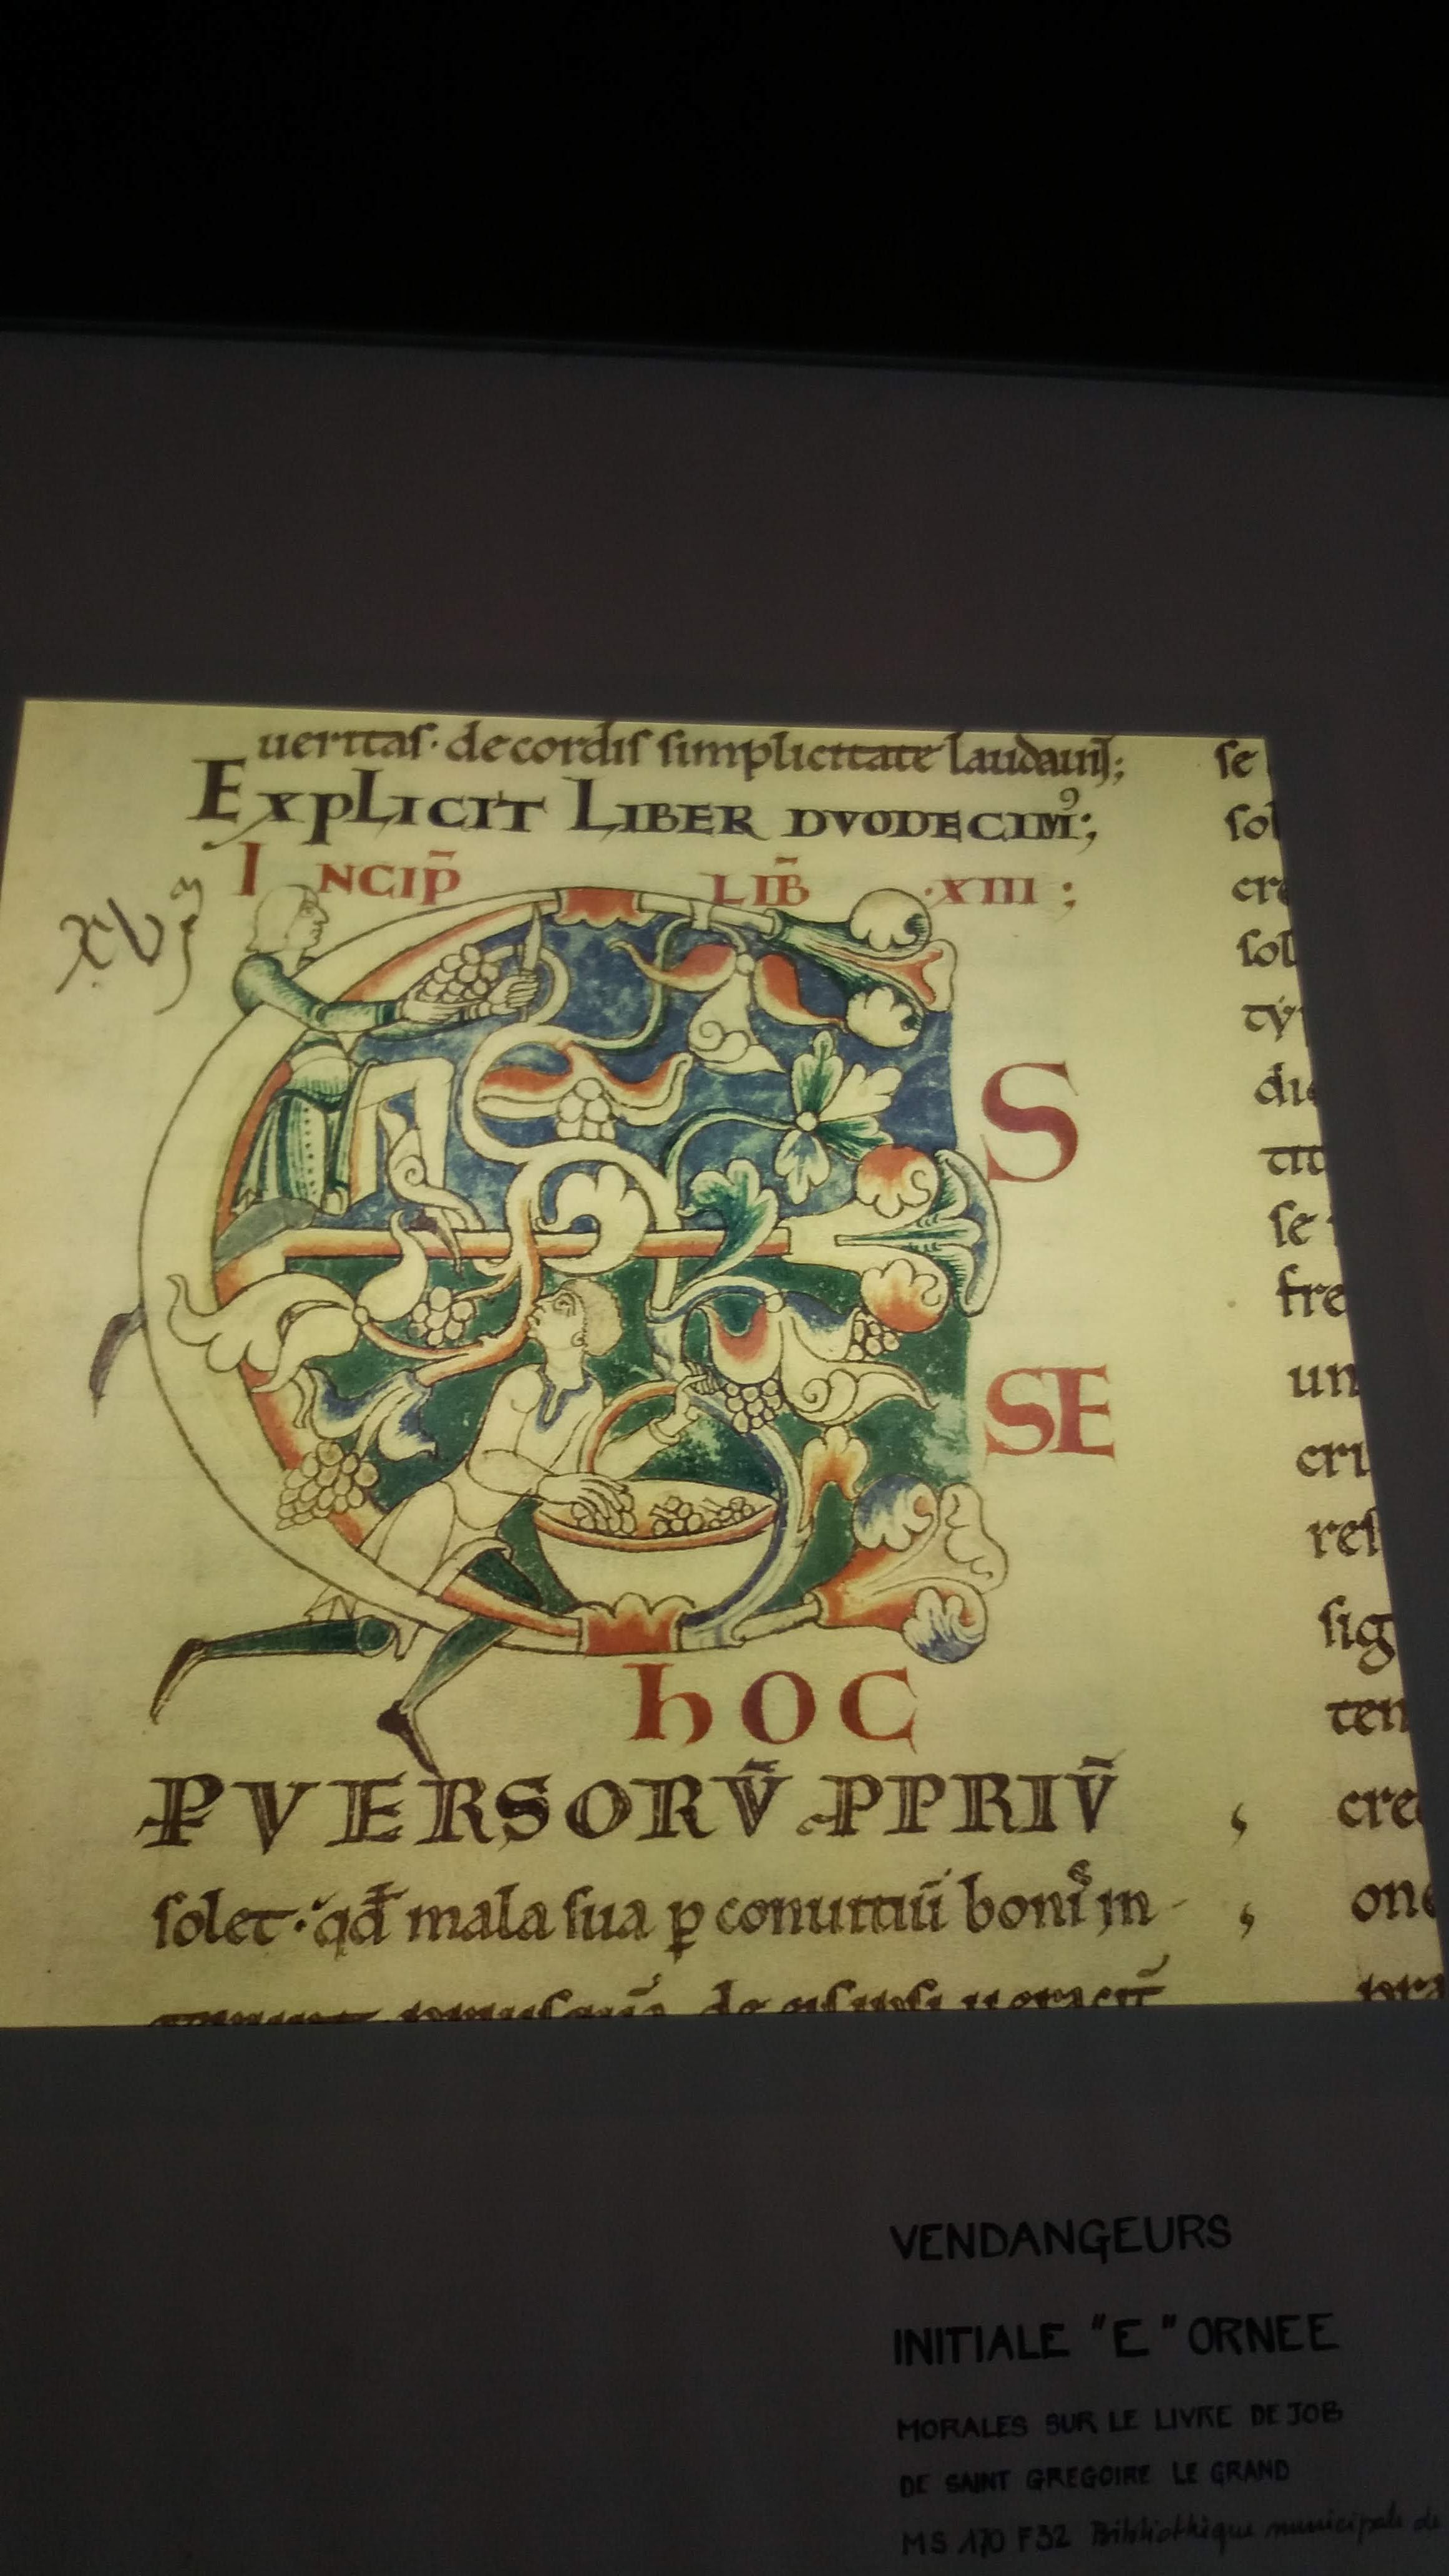 ueritas· de cordis simplicitate laudauıȷ;
EXPLICIT LIBER DVODECIM⁹;
INCIP̄ LIB̄ ·XIII;
XVJ
S
SE
hOC
PVERSORV̄ PPRIV̄
solet· qđ mala sua ꝑ conuitiū bonis in
se
sol
cre
sol
ty
dic
tit
se
fre
un
cri
res
sig
ten
cre
one
VENDANGEURS
INITIALE "E" ORNEE
MORALES SUR LE LIVRE DE JOB
DE SAINT GREGOIRE LE GRAND
MS 170 F32 Bibliothèque municipale de